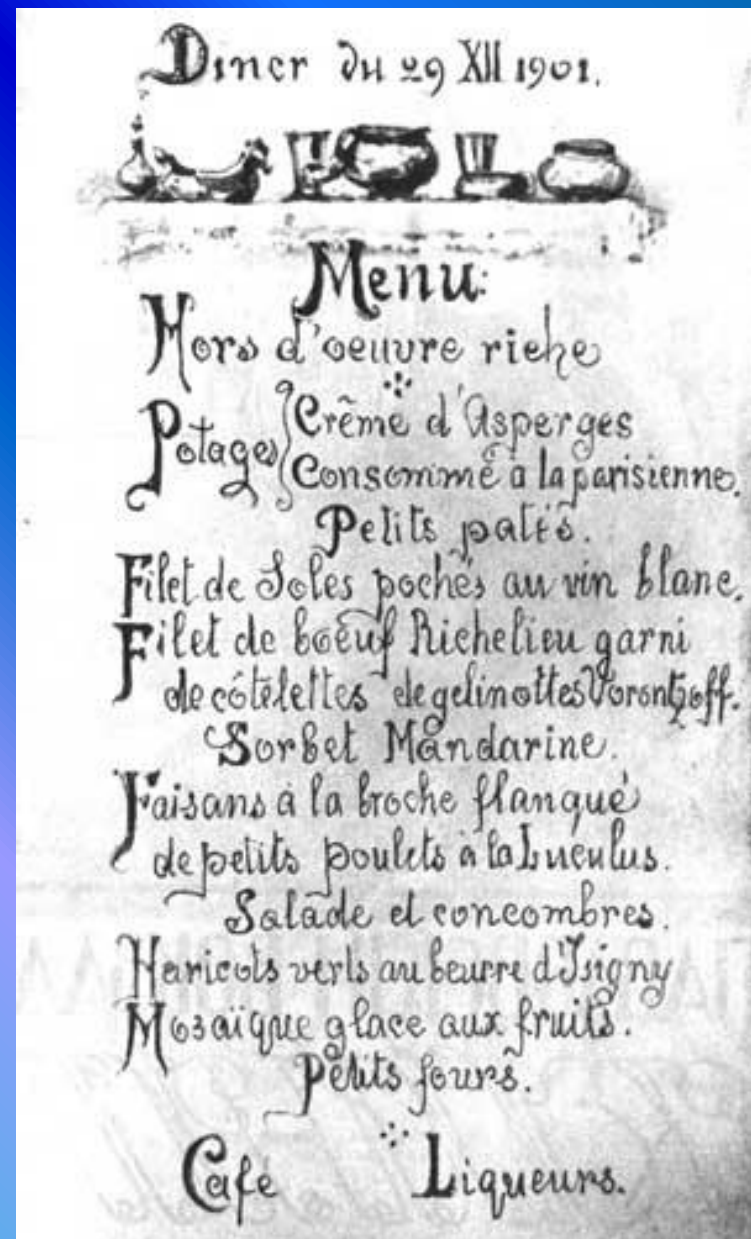 Diner du 29 XII 1901.
Menu:
Hors d'oeuvre riche
Potages { Crême d'Asperges
Consommé à la parisienne.
Petits patés.
Filet de Soles pochés au vin blanc.
Filet de boeuf Richelieu garni
de côtelettes de gelinottes Vorontzoff.
Sorbet Mandarine.
Faisans à la broche flanqué
de petits poulets à la Luculus.
Salade et concombres.
Haricots verts au beurre d'Isigny
Mozaïque glace aux fruits.
Petits fours.
Café Liqueurs.